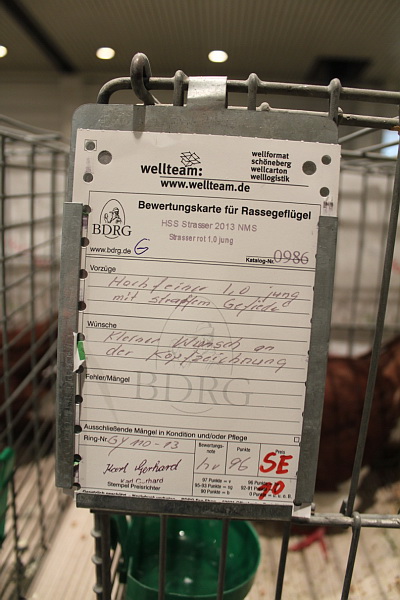 wellteam:
www.wellteam.de
wellformat
schöneberg
wellcarton
welllogistik
BDRG
www.bdrg.de G
Bewertungskarte für Rassegeflügel
HSS Strasser 2013 NMS
Strasser rot 1.0 jung
Katalog-Nr. 0986
Vorzüge
Hochfeiner 1,0 jung
mit straffem Gefieder
Wünsche
Kleiner Wunsch an
der Kopfzeichnung
Fehler/Mängel
BDRG
Ausschließende Mängel in Kondition und/oder Pflege
Ring-Nr. GY 110-13
Karl Gerhard
Karl Gerhard
Stempel Preisrichter
Bewertungsnote
hv
Punkte
96
Preis
SE
10
97 Punkte = v
96 Punkte =